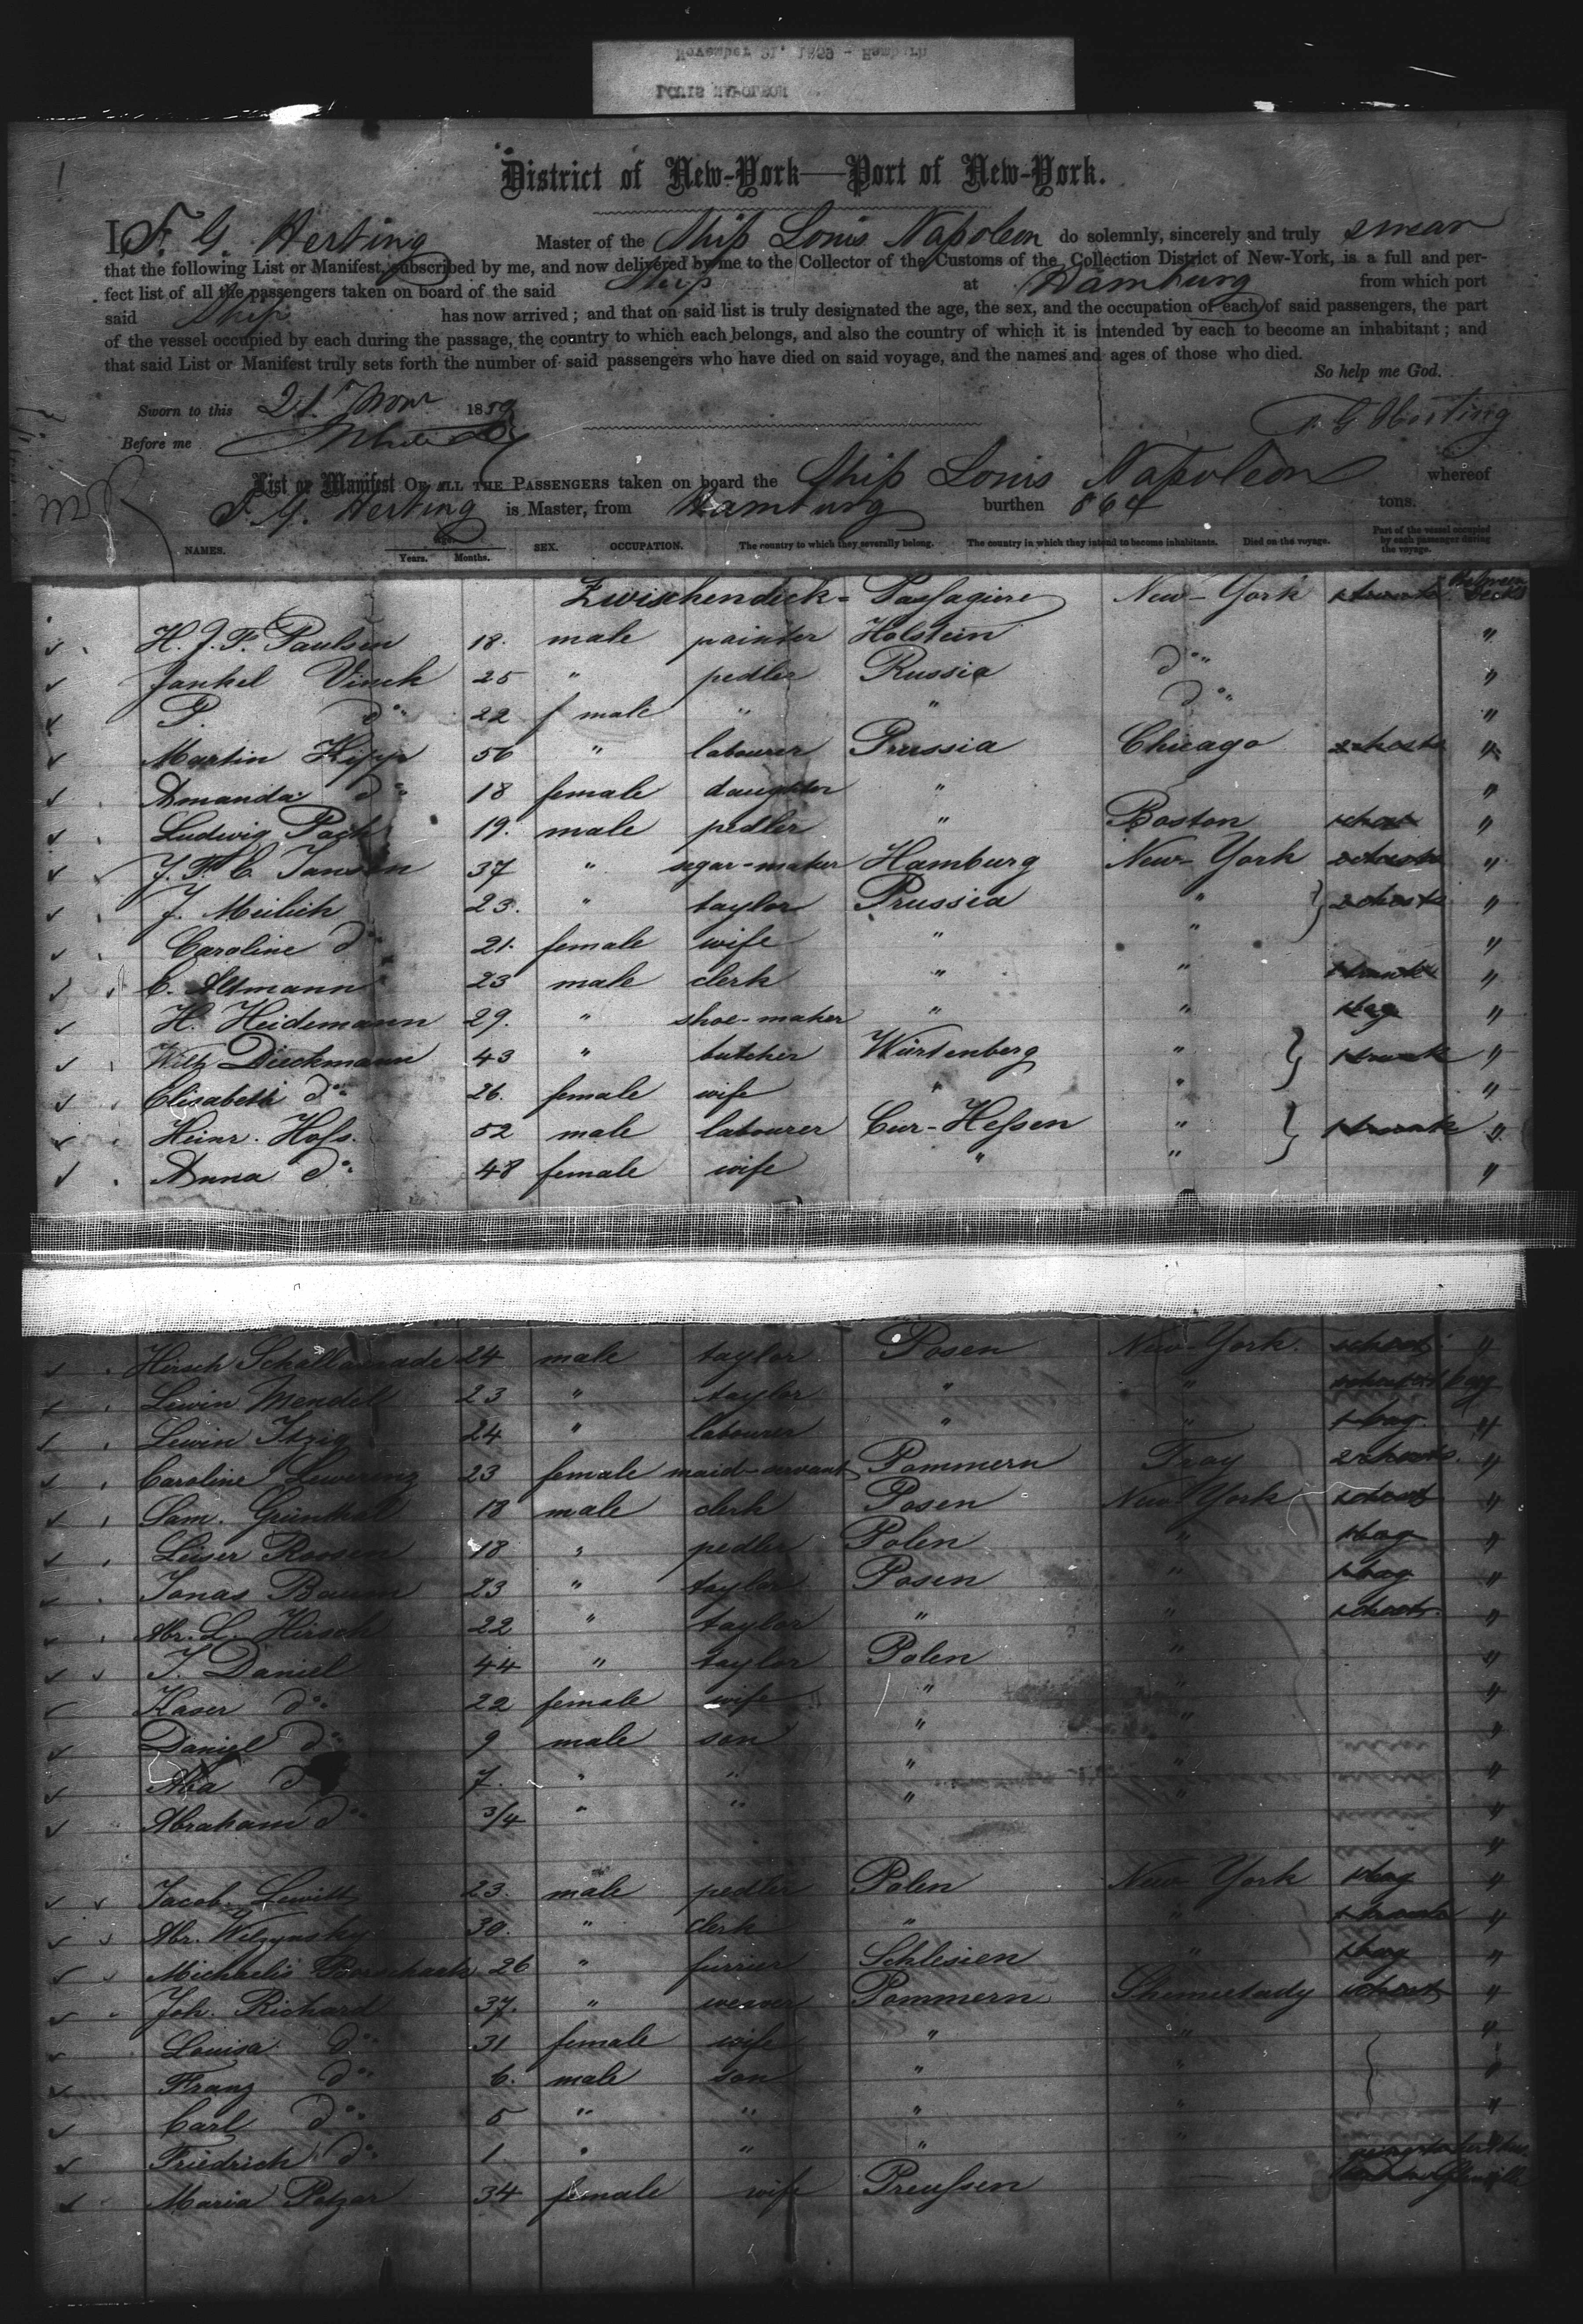 District of New-York—Port of New-York.
I, F. G. Herting Master of the Ship Louis Napoleon do solemnly, sincerely and truly swear
that the following List or Manifest, subscribed by me, and now delivered by me to the Collector of the Customs of the Collection District of New-York, is a full and per-
fect list of all the passengers taken on board of the said Ship at Hamburg from which port
said Ship has now arrived; and that on said list is truly designated the age, the sex, and the occupation of each of said passengers, the part
of the vessel occupied by each during the passage, the country to which each belongs, and also the country of which it is intended by each to become an inhabitant; and
that said List or Manifest truly sets forth the number of said passengers who have died on said voyage, and the names and ages of those who died.
So help me God.
Sworn to this 21st Novr 1859
F. G. Herting
Before me
List or Manifest OF ALL THE PASSENGERS taken on board the Ship Louis Napoleon whereof
F. G. Herting is Master, from Hamburg burthen 864 tons.
NAMES. Age. Years. Months. SEX. OCCUPATION. The country to which they severally belong. The country in which they intend to become inhabitants. Died on the voyage. Part of the vessel occupied by each passenger during the voyage.
Zwischendeck=Passagiere New-York 1 trunk Between Decks
H. J. F. Paulsen 18. male painter Holstein "
Jankel Vinck 25 " pedler Russia do "
P. do 22 f male " " do "
Martin Kipp 56 " labourer Prussia Chicago 2 chests "
Amanda do 18 female daughter " "
Ludwig Pach 19. male pedler " Boston 1 chest "
J. F. C. Jansen 37 " segar-maker Hamburg New-York "
J. Meilich 23. " taylor Prussia " 2 chests "
Caroline do 21. female wife " " "
C. Altmann 23 male clerk " " 1 trunk "
H. Heidemann 29. " shoe-maker " " 1 bag "
Wilh. Dieckmann 43 " butcher Würtenberg " 1 trunk "
Elisabeth do 26. female wife " " "
Heinr. Hofs. 52 male labourer Cur-Hessen " 1 trunk "
Anna do 48 female wife " " "
Hirsch 24 male taylor Posen New-York. 1 chest "
Lewin Mendel 23 " taylor " " bag
Lewin Itzig 24 " labourer " " 1 bag "
Caroline Lewerenz 23 female maid-servant Pommern Troy 2 chests. "
Sam. Grünthal 18 male clerk Posen New York 1 chest "
Leiser Roosen 18 " pedler Polen " 1 bag "
Jonas Baum 23 " taylor Posen " 1 bag "
Abr. L. Hirsch 22 " taylor " " 1 chest. "
J. Daniel 44 " taylor Polen " "
Kaser do 22 female wife " " "
Daniel do 9 male son " " "
Aba do 7. " " " " "
Abraham do 3/4 " " " " "
"
Jacob Lewitt 23. male pedler Polen New York 1 bag "
Abr. Wilzynsky 30. " clerk " " 1 trunk "
Michaelis 26 " furrier Schlesien " 1 bag "
Joh. Richard 37. " weaver Pommern Shenectady 1 chest "
Louisa do 31 female wife " " "
Franz do 6. male son " " "
Carl do 5 " " " " "
Friedrich do 1. " " " "
Maria Petzar 34 female wife Preussen